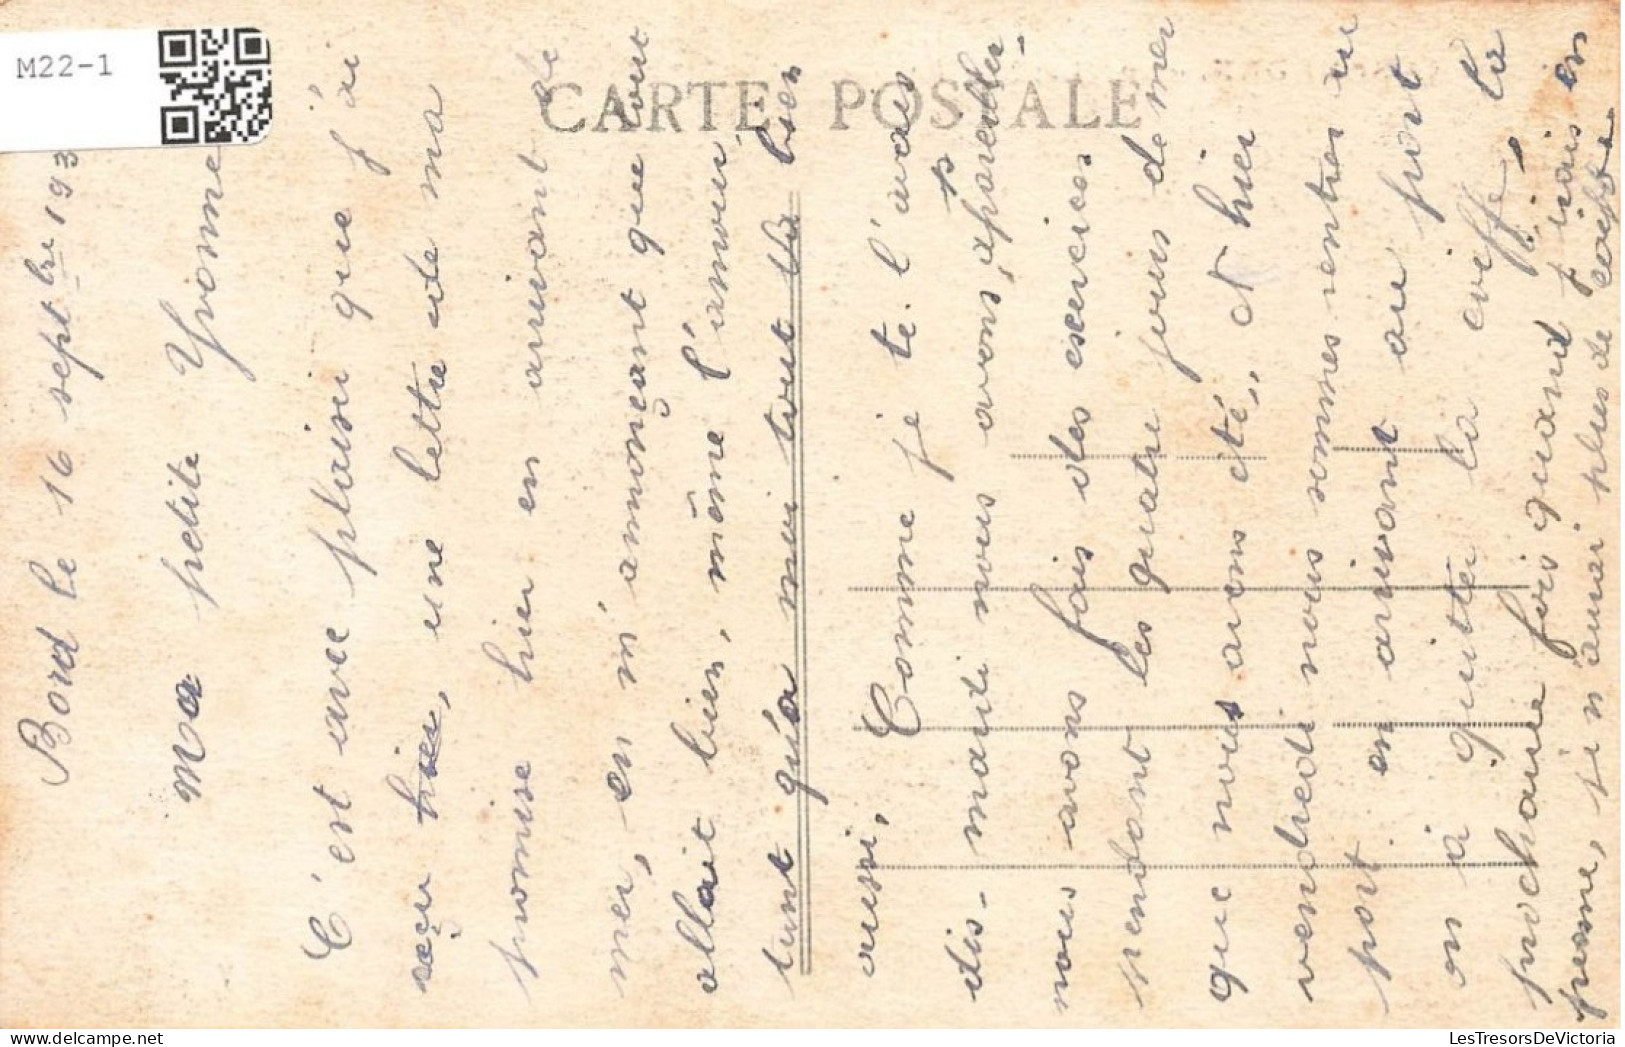 M22-1
CARTE POSTALE
Bord le 16 septbre 193
Ma petite Yvonne
C'est avec plaisir que j'ai
reçu hier, une lettre de ma
promise hier en arrivant de
mer, en m'annonçant que tout
allait bien, même l'amour
tant qu'a moi tout va bien
aussi, Comme je te l'avais
dis- mardi nous avons, appareiller-
nous avons fais des exercices
pendant les quatre jours de mer
que nous avons été, et hier
vendredi nous sommes rentrer au
port en arrivant au port
on à quitter la coiffe, la
prochaine fois quand j'irais en
perme, j'i n'aurai plus de coiffe
LesTresorsDeVictoria